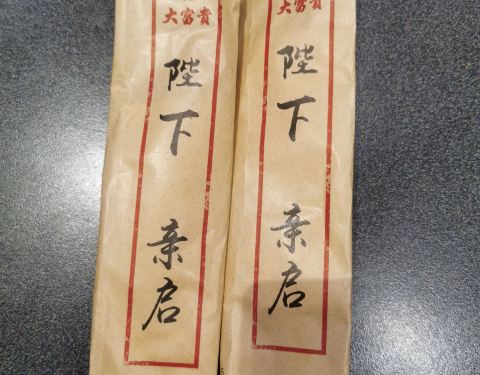 大富貴
陛下 亲启
大富貴
陛下 亲启